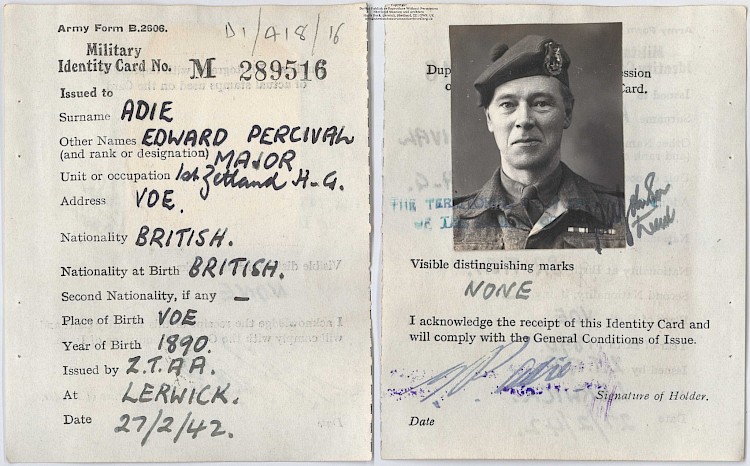 Army Form B.2606.
D1/418/16
Military
Identity Card No. M 289516
Issued to
Surname ADIE
Other Names EDWARD PERCIVAL
(and rank or designation) MAJOR
Unit or occupation 1st Zetland H.G.
Address VOE.
Nationality BRITISH.
Nationality at Birth BRITISH.
Second Nationality, if any –
Place of Birth VOE
Year of Birth 1890.
Issued by Z.T.A.A.
At LERWICK.
Date 27/2/42.
Dup
ession
o
Card.
THE TERR
OF
Visible distinguishing marks
NONE
I acknowledge the receipt of this Identity Card and
will comply with the General Conditions of Issue.
Adie
Signature of Holder.
Date